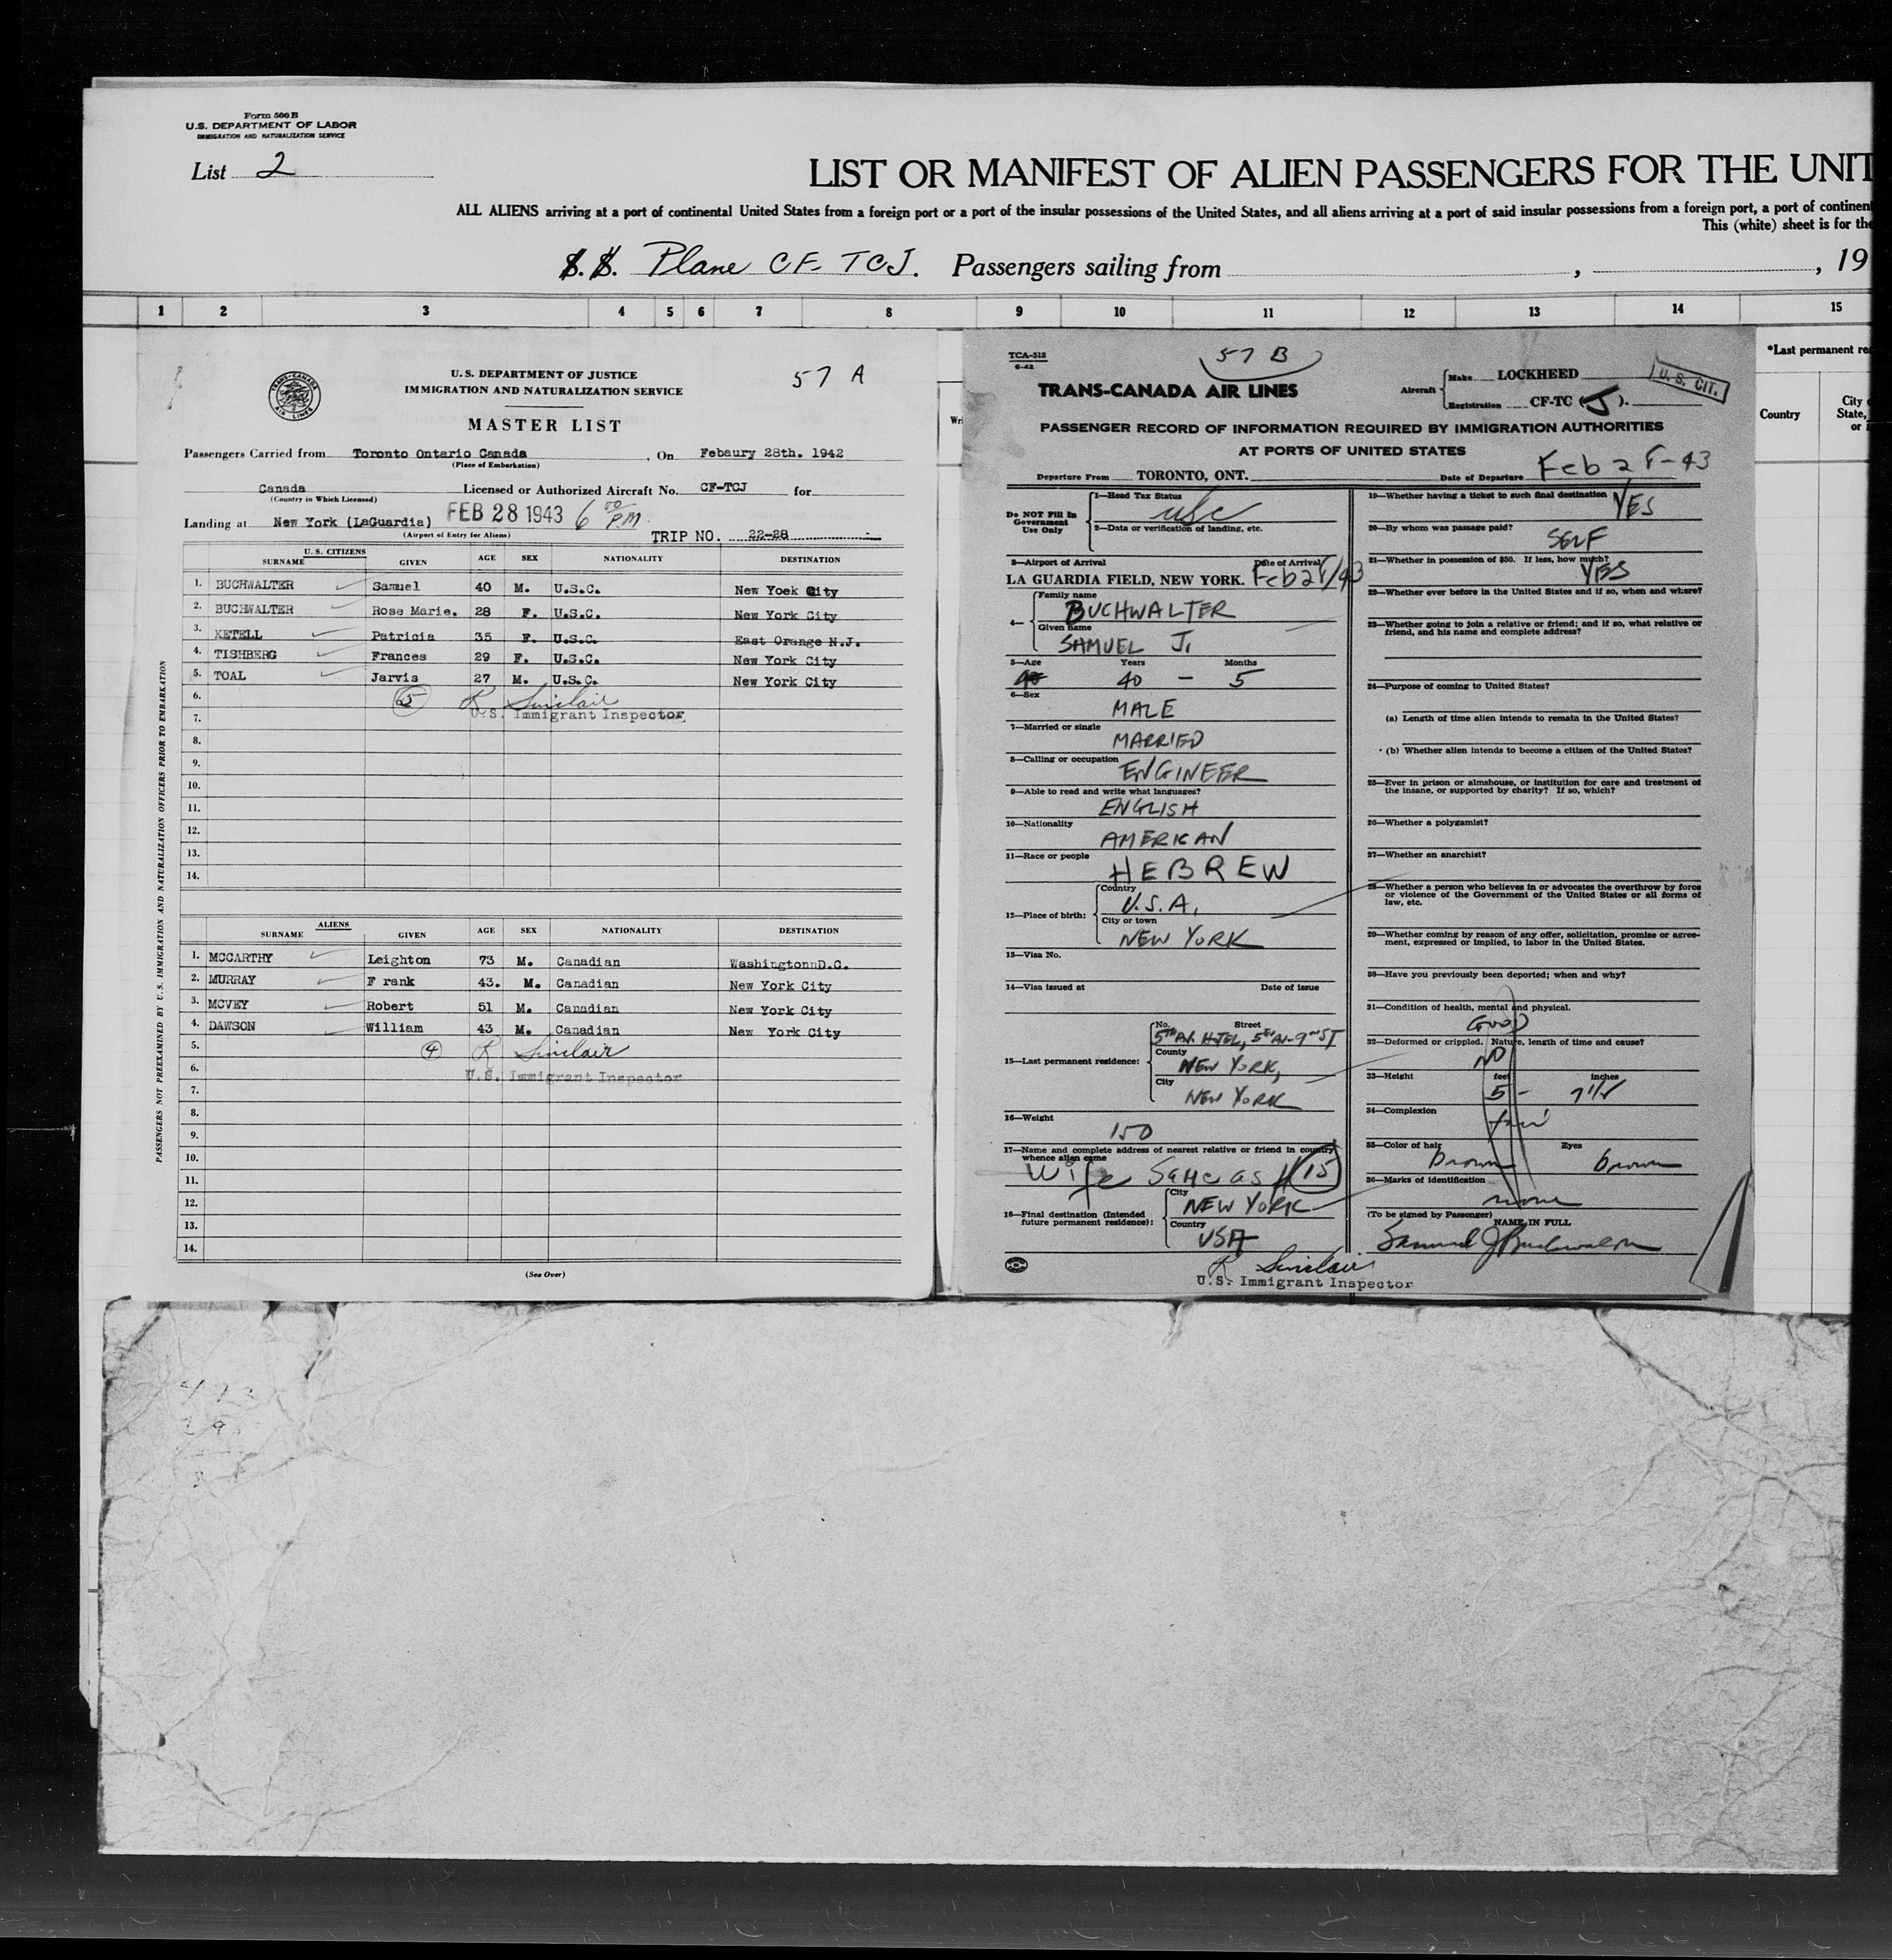 Form 500 B
U.S. DEPARTMENT OF LABOR
IMMIGRATION AND NATURALIZATION SERVICE
List 2
LIST OR MANIFEST OF ALIEN PASSENGERS FOR THE UNIT
ALL ALIENS arriving at a port of continental United States from a foreign port or a port of the insular possessions of the United States, and all aliens arriving at a port of said insular possessions from a foreign port, a port of continen
This (white) sheet is for the
S. S. Plane CF-TCJ. Passengers sailing from , , 19
1 2 3 4 5 6 7 8 9 10 11 12 13 14 15
57 A
TRANS-CANADA AIR LINES
U. S. DEPARTMENT OF JUSTICE
IMMIGRATION AND NATURALIZATION SERVICE
MASTER LIST
Passengers Carried from Toronto Ontario Canada , On Febaury 28th. 1942
(Place of Embarkation)
Canada Licensed or Authorized Aircraft No. CF-TCJ for
(Country in Which Licensed)
Landing at New York (LaGuardia) FEB 28 1943 6 50 P.M.
(Airport of Entry for Aliens)
TRIP NO. 22-28
U. S. CITIZENS
SURNAME GIVEN AGE SEX NATIONALITY DESTINATION
1. BUCHWALTER Samuel 40 M. U.S.C. New Yoek City
2. BUCHWALTER Rose Marie. 28 F. U.S.C. New York City
3. KETELL Patricia 35 F. U.S.C. East Orange N.J.
4. TISHBERG Frances 29 F. U.S.C. New York City
5. TOAL Jarvis 27 M. U.S.C. New York City
6. 5 R Sinclair
7. U.S. Immigrant Inspector
8.
9.
10.
11.
12.
13.
14.
ALIENS
SURNAME GIVEN AGE SEX NATIONALITY DESTINATION
1. MCCARTHY Leighton 73 M. Canadian WashingtonnD.C.
2. MURRAY F rank 43. M. Canadian New York City
3. MCVEY Robert 51 M. Canadian New York City
4. DAWSON William 43 M. Canadian New York City
5. 4 R Sinclair
6. U.S. Immigrant Inspector
7.
8.
9.
10.
11.
12.
13.
14.
(See Over)
PASSENGERS NOT PREEXAMINED BY U.S. IMMIGRATION AND NATURALIZATION OFFICERS PRIOR TO EMBARKATION
TCA-518
6-42
57 B
TRANS-CANADA AIR LINES
Aircraft Make LOCKHEED
Registration CF-TC (J).
U. S. CIT.
PASSENGER RECORD OF INFORMATION REQUIRED BY IMMIGRATION AUTHORITIES
AT PORTS OF UNITED STATES
Departure From TORONTO, ONT. Date of Departure Feb 28-43
Do NOT Fill In Government Use Only
1—Head Tax Status
usc
2—Data or verification of landing, etc.
3—Airport of Arrival Date of Arrival
LA GUARDIA FIELD, NEW YORK. Feb 28/43
4—
Family name
BUCHWALTER
Given name
SAMUEL J.
5—Age Years Months
40 — 5
6—Sex
MALE
7—Married or single
MARRIED
8—Calling or occupation
ENGINEER
9—Able to read and write what languages?
ENGLISH
10—Nationality
AMERICAN
11—Race or people
HEBREW
12—Place of birth:
Country
U.S.A.
City or town
NEW YORK
13—Visa No.
14—Visa issued at Date of issue
15—Last permanent residence:
No. Street
5TH AV. HOTEL, 5TH AV-9TH ST
County
NEW YORK,
City
NEW YORK
16—Weight
150
17—Name and complete address of nearest relative or friend in country
whence alien came
Wife Same as #15
18—Final destination (Intended
future permanent residence):
City
NEW YORK
Country
USA
R Sinclair
U.S. Immigrant Inspector
19—Whether having a ticket to such final destination YES
20—By whom was passage paid?
SELF
21—Whether in possession of $50. If less, how much?
YES
22—Whether ever before in the United States and if so, when and where?
23—Whether going to join a relative or friend; and if so, what relative or
friend, and his name and complete address?
24—Purpose of coming to United States?
(a) Length of time alien intends to remain in the United States?
(b) Whether alien intends to become a citizen of the United States?
25—Ever in prison or almshouse, or institution for care and treatment of
the insane, or supported by charity? If so, which?
26—Whether a polygamist?
27—Whether an anarchist?
28—Whether a person who believes in or advocates the overthrow by force
or violence of the Government of the United States or all forms of
law, etc.
29—Whether coming by reason of any offer, solicitation, promise or agree-
ment, expressed or implied, to labor in the United States.
30—Have you previously been deported; when and why?
31—Condition of health, mental and physical.
GOOD
32—Deformed or crippled. Nature, length of time and cause?
NO
33—Height feet inches
5 — 7 1/2
34—Complexion
fair
35—Color of hair Eyes
brown brown
36—Marks of identification
none
(To be signed by Passenger) NAME IN FULL
Samuel J Buchwalter
*Last permanent re
Country
City
State,
or